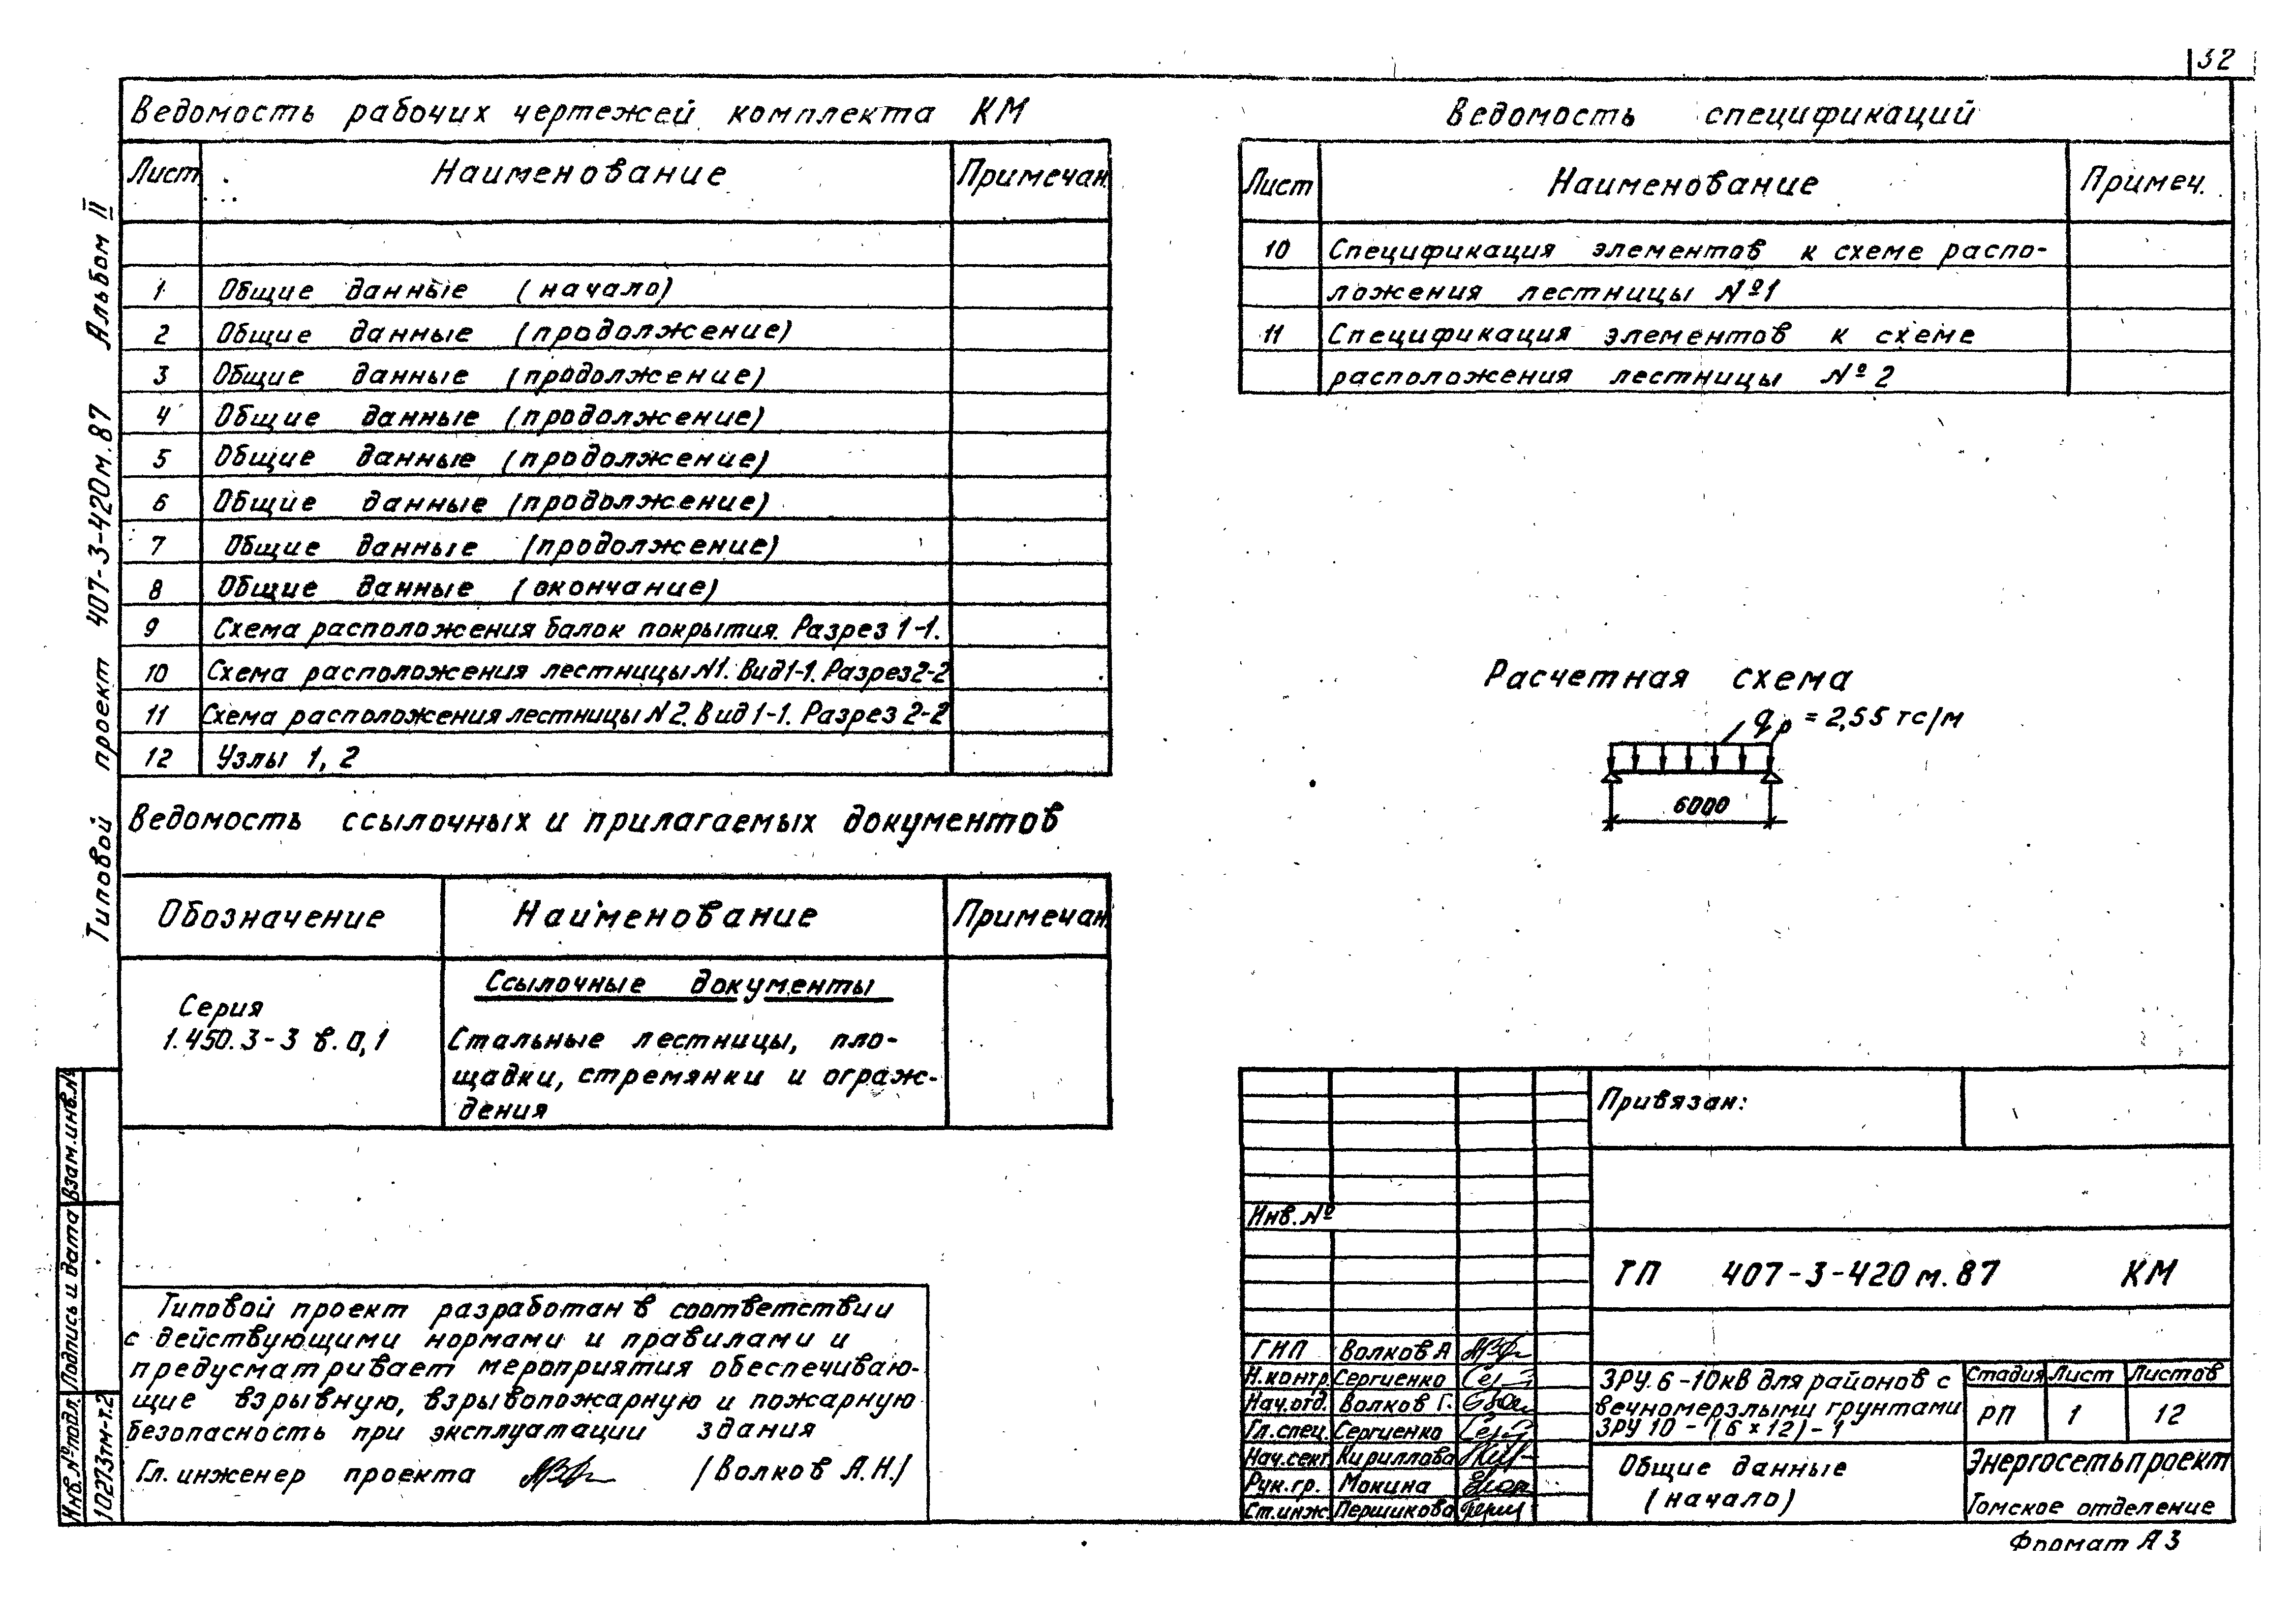 32
Ведомость рабочих чертежей комплекта КМ
Лист Наименование Примечан.
1 Общие данные (начало)
2 Общие данные (продолжение)
3 Общие данные (продолжение)
4 Общие данные (продолжение)
5 Общие данные (продолжение)
6 Общие данные (продолжение)
7 Общие данные (продолжение)
8 Общие данные (окончание)
9 Схема расположения балок покрытия. Разрез 1-1.
10 Схема расположения лестницы N1. Вид 1-1. Разрез 2-2
11 Схема расположения лестницы N2. Вид 1-1. Разрез 2-2
12 Узлы 1, 2
Ведомость ссылочных и прилагаемых документов
Обозначение Наименование Примечан.
Ссылочные документы
Серия
1.450.3-3 в.0,1 Стальные лестницы, пло-
щадки, стремянки и ограж-
дения
Типовой проект разработан в соответствии
с действующими нормами и правилами и
предусматривает мероприятия обеспечиваю-
щие взрывную, взрывопожарную и пожарную
безопасность при эксплуатации здания
Гл. инженер проекта /Волков А.Н./
Ведомость спецификаций
Лист Наименование Примеч.
10 Спецификация элементов к схеме распо-
ложения лестницы №1
11 Спецификация элементов к схеме
расположения лестницы №2
Расчетная схема
qр = 2,55 тс/м
6000
Привязан:
Инв. №
ТП 407-3-420м.87 КМ
ГИП Волков А
Н.контр. Сергиенко
Нач.отд. Волков Г.
Гл.спец. Сергиенко
Нач.сект. Кириллова
Рук.гр. Мокина
Ст.инж. Першикова
ЗРУ 6-10кВ для районов с
вечномерзлыми грунтами
ЗРУ 10-(6×12)-1
Стадия Лист Листов
РП 1 12
Общие данные
(начало)
Энергосетьпроект
Томское отделение
Формат А3
Типовой проект 407-3-420м.87 Альбом II
Инв.№подл. Подпись и дата Взам.инв.№
10273тм-т.2